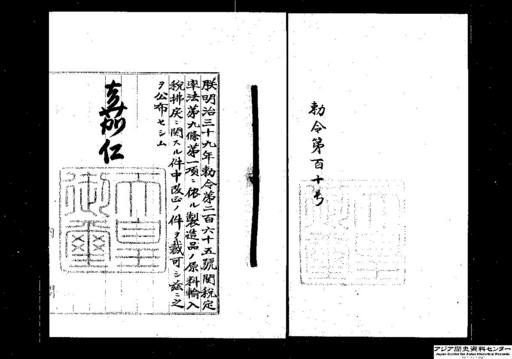 勅令第百十号
朕明治三十九年勅令第二百六十五號関税定
率法第九條第一項ニ依ル製造品ノ原料輸入
税拂戻ニ関スル件中改正ノ件ヲ裁可シ茲ニ之
ヲ公布セシム
嘉仁
天皇
御璽
アジア歴史資料センター
Japan Center for Asian Historical Records